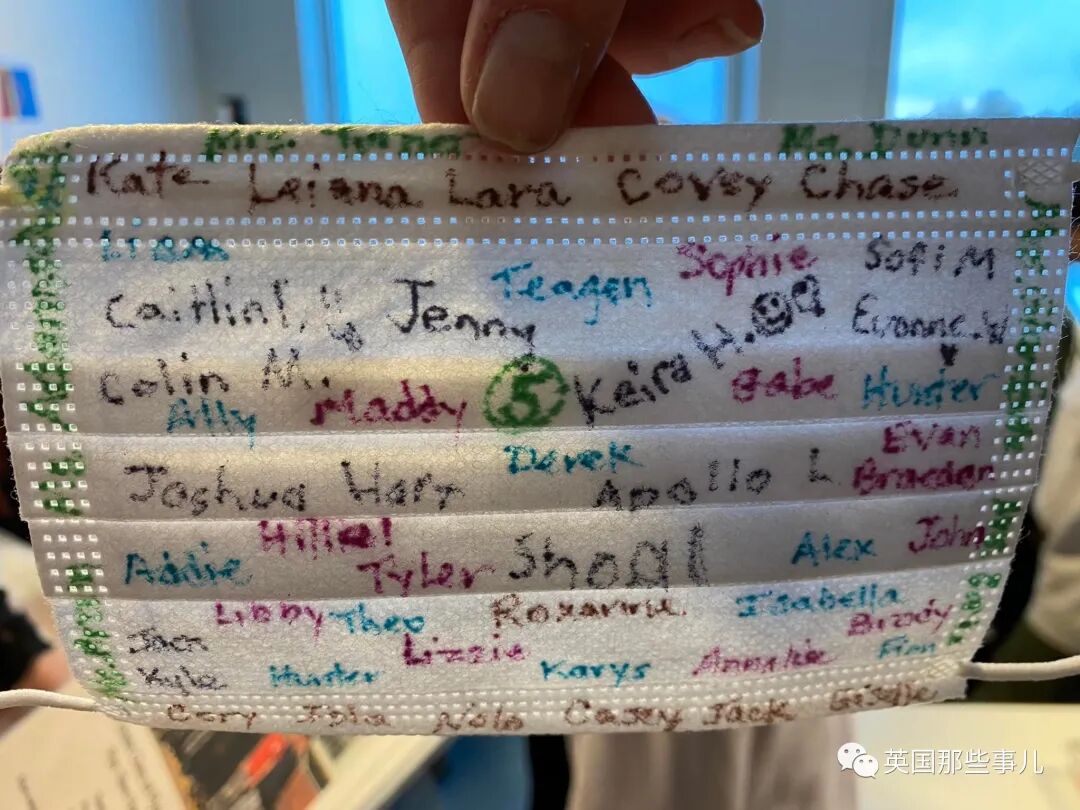 Mrs. Turner Ms. Dunn
Kate Leiana Lara Covey Chase
Liam Sophie Sofi M
Caitlin T. Jenny Teagen Keira H. Evonne.W
Colin M. Maddy 5 Gabe Hunter
Ally Evan
Joshua Harr Derek Apollo L Braeden
Hillel Shoal John
Addie Tyler Alex
Libby Theo Roxanna Isabella Brody
Jack Lizzie Annalise Finn
Kyle Hunter Karys
Cory Nolo Casey Jack Giselle
英国那些事儿